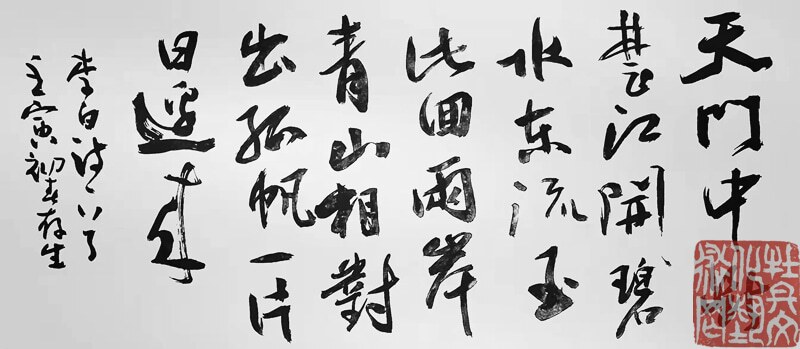 天門中斷
楚江開碧
水東流至
此回兩岸
青山相對
出孤帆一片
日邊來
李白詩一首
壬寅初春存生